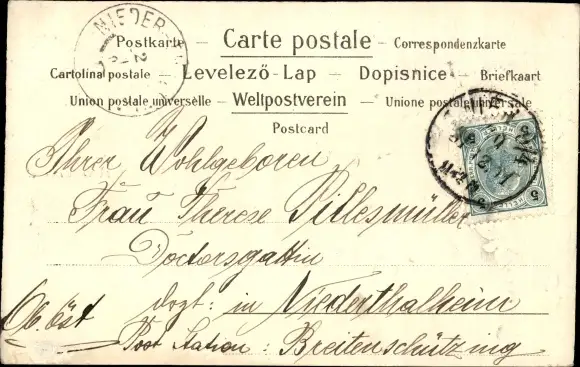 NIEDER
Postkarte – Carte postale – Correspondenzkarte
Cartolina postale – Levelező-Lap – Dopisnice – Briefkaart
Union postale universelle – Weltpostverein – Unione postale universale
Postcard
Ihrer Wohlgeboren
Frau Therese
Doctorsgattin
Ob. Öst dozt: in Niederthalheim
Post Station: Breitenschützing